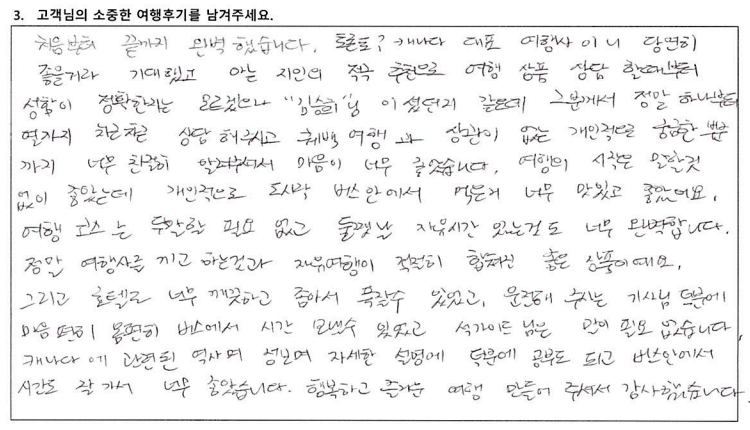 3. 고객님의 소중한 여행후기를 남겨주세요.
처음부터 끝까지 완벽했습니다. 토론토? 캐나다 대표 여행사이니 당연히
좋을거라 기대했고 아는 지인의 적극 추천으로 여행 상품 상담 할때부터
성함이 정확한지는 모르겠으나 "김승희"님 이셨던거 같은데 그분께서 정말 하나부터
열까지 차근차근 상담해주시고 퀘벡 여행과 상관이 없는 개인적으로 궁금한 부분
까지 너무 친절히 알려주셔서 마음이 너무 좋았습니다. 여행의 시작은 말할것
없이 좋았는데 개인적으로 도시락 버스안에서 먹은게 너무 맛있고 좋았어요.
여행 코스는 두말할 필요 없고 둘쨋날 자유시간 있는것도 너무 완벽합니다.
정말 여행사를 끼고 하는것과 자유여행이 적절히 합쳐진 좋은 상품이예요.
그리고 호텔도 너무 깨끗하고 좋아서 푹잘수 있었고, 운전해 주시는 기사님 덕분에
마음 편히 몸편히 버스에서 시간 보낼수 있었고 석가이드님은 말이 필요 없습니다
캐나다에 관련된 역사며 정보며 자세한 설명에 덕분에 공부도 되고 버스안에서
시간도 잘가서 너무 좋았습니다. 행복하고 즐거운 여행 만들어 주셔서 감사했습니다.